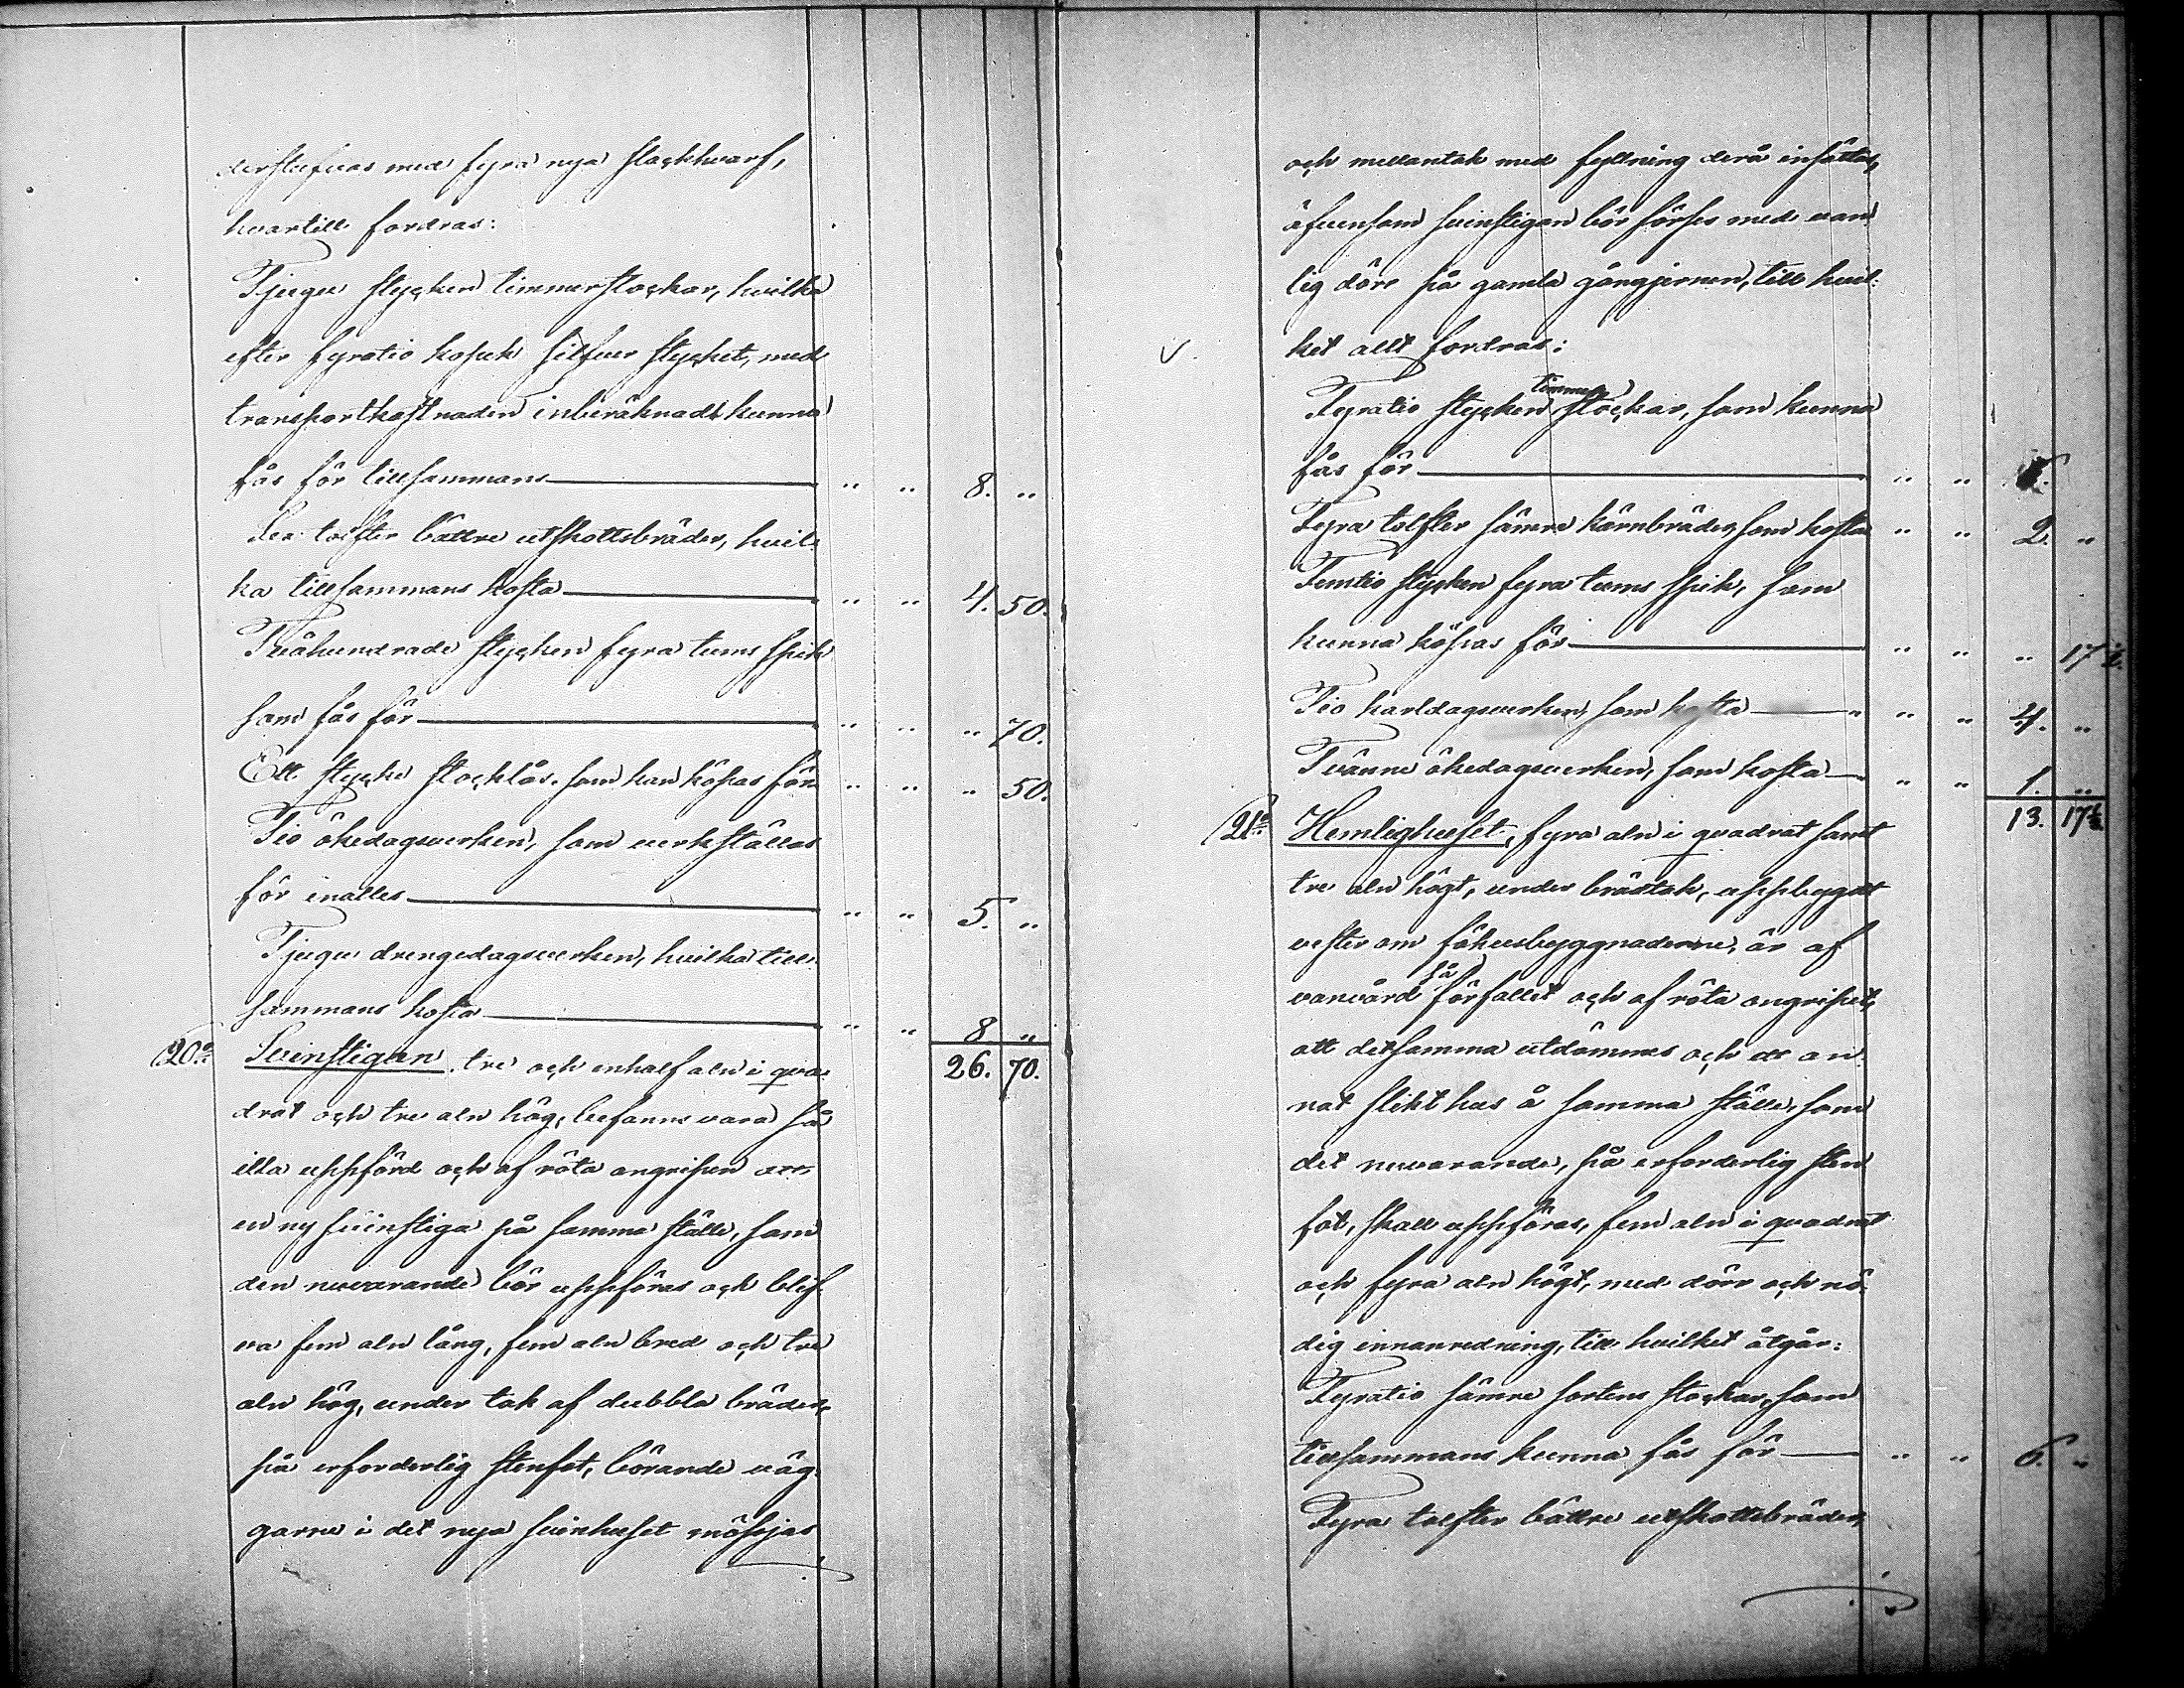 derstufvas med fyra nya stockhvarf,
hvartill fordras:
Tjugu stycken timmerstockar, hvilka
efter fyratio kopek silfver stycket, med
transportkostnaden inberäknad kunna
fås för tillsammans — " " 8. "
Sex tolfter bättre utskottsbräder, hvil-
ka tillsammans kosta — " " 4. 50.
Tvåhundrade stycken fyra tums spik
som fås för — " " " 70.
Ett stycke stocklås som kan köpas för " " " 50.
Tio ökedagsverken, som verkställas
för inalles — " " 5. "
Tjugu drengedagsverken, hvilka till-
sammans kosta — " " 8 "
20:o Svinstigan, tre och enhalf aln i qva- 26. 70.
drat och tre aln hög, befanns vara så
illa uppförd och af röta angripen att
en ny svinstiga på samma ställe, som
den nuvarande bör uppföras och blif-
va fem aln lång, fem aln bred och tre
aln hög, under tak af dubbla bräder,
på erforderlig stenfot, börande väg-
garne i det nya svinhuset mössjas
och mellantak med fyllning derå insättas,
äfvensom svinstigan bör förses med van-
lig dörr på gamla gångjernen, till hvil-
ket allt fordras:
timmer
Fyratio stycken stockar, som kunna
fås för — " "
Fyra tolfter sämre kärnbräder som kosta " " 2. "
Femtio stycken fyra tums spik, som
kunna köpas för — " " " 17½.
Tio karldagsverken, som kosta — " " 4. "
Tvänne ökedagsverken, som kosta — " " 1. "
21:o Hemlighuset, fyra aln i quadrat samt 13. 17½
tre aln högt, under brädtak, uppbyggdt
vester om fähusbyggnaderne, är af
så
vanvård förfallet och af röta angripet,
att detsamma utdömmes och et an-
nat slikt hus å samma ställe, som
det nuvarande, på erforderlig sten
fot, skall uppföras, fem aln i quadrat
och fyra aln högt, med dörr och nö-
dig innanredning, till hvilket åtgår:
Fyratio sämre sortens stockar, som
tillsammans kunna fås för — " " 6. "
Fyra tolfter bättre utskottsbräder,